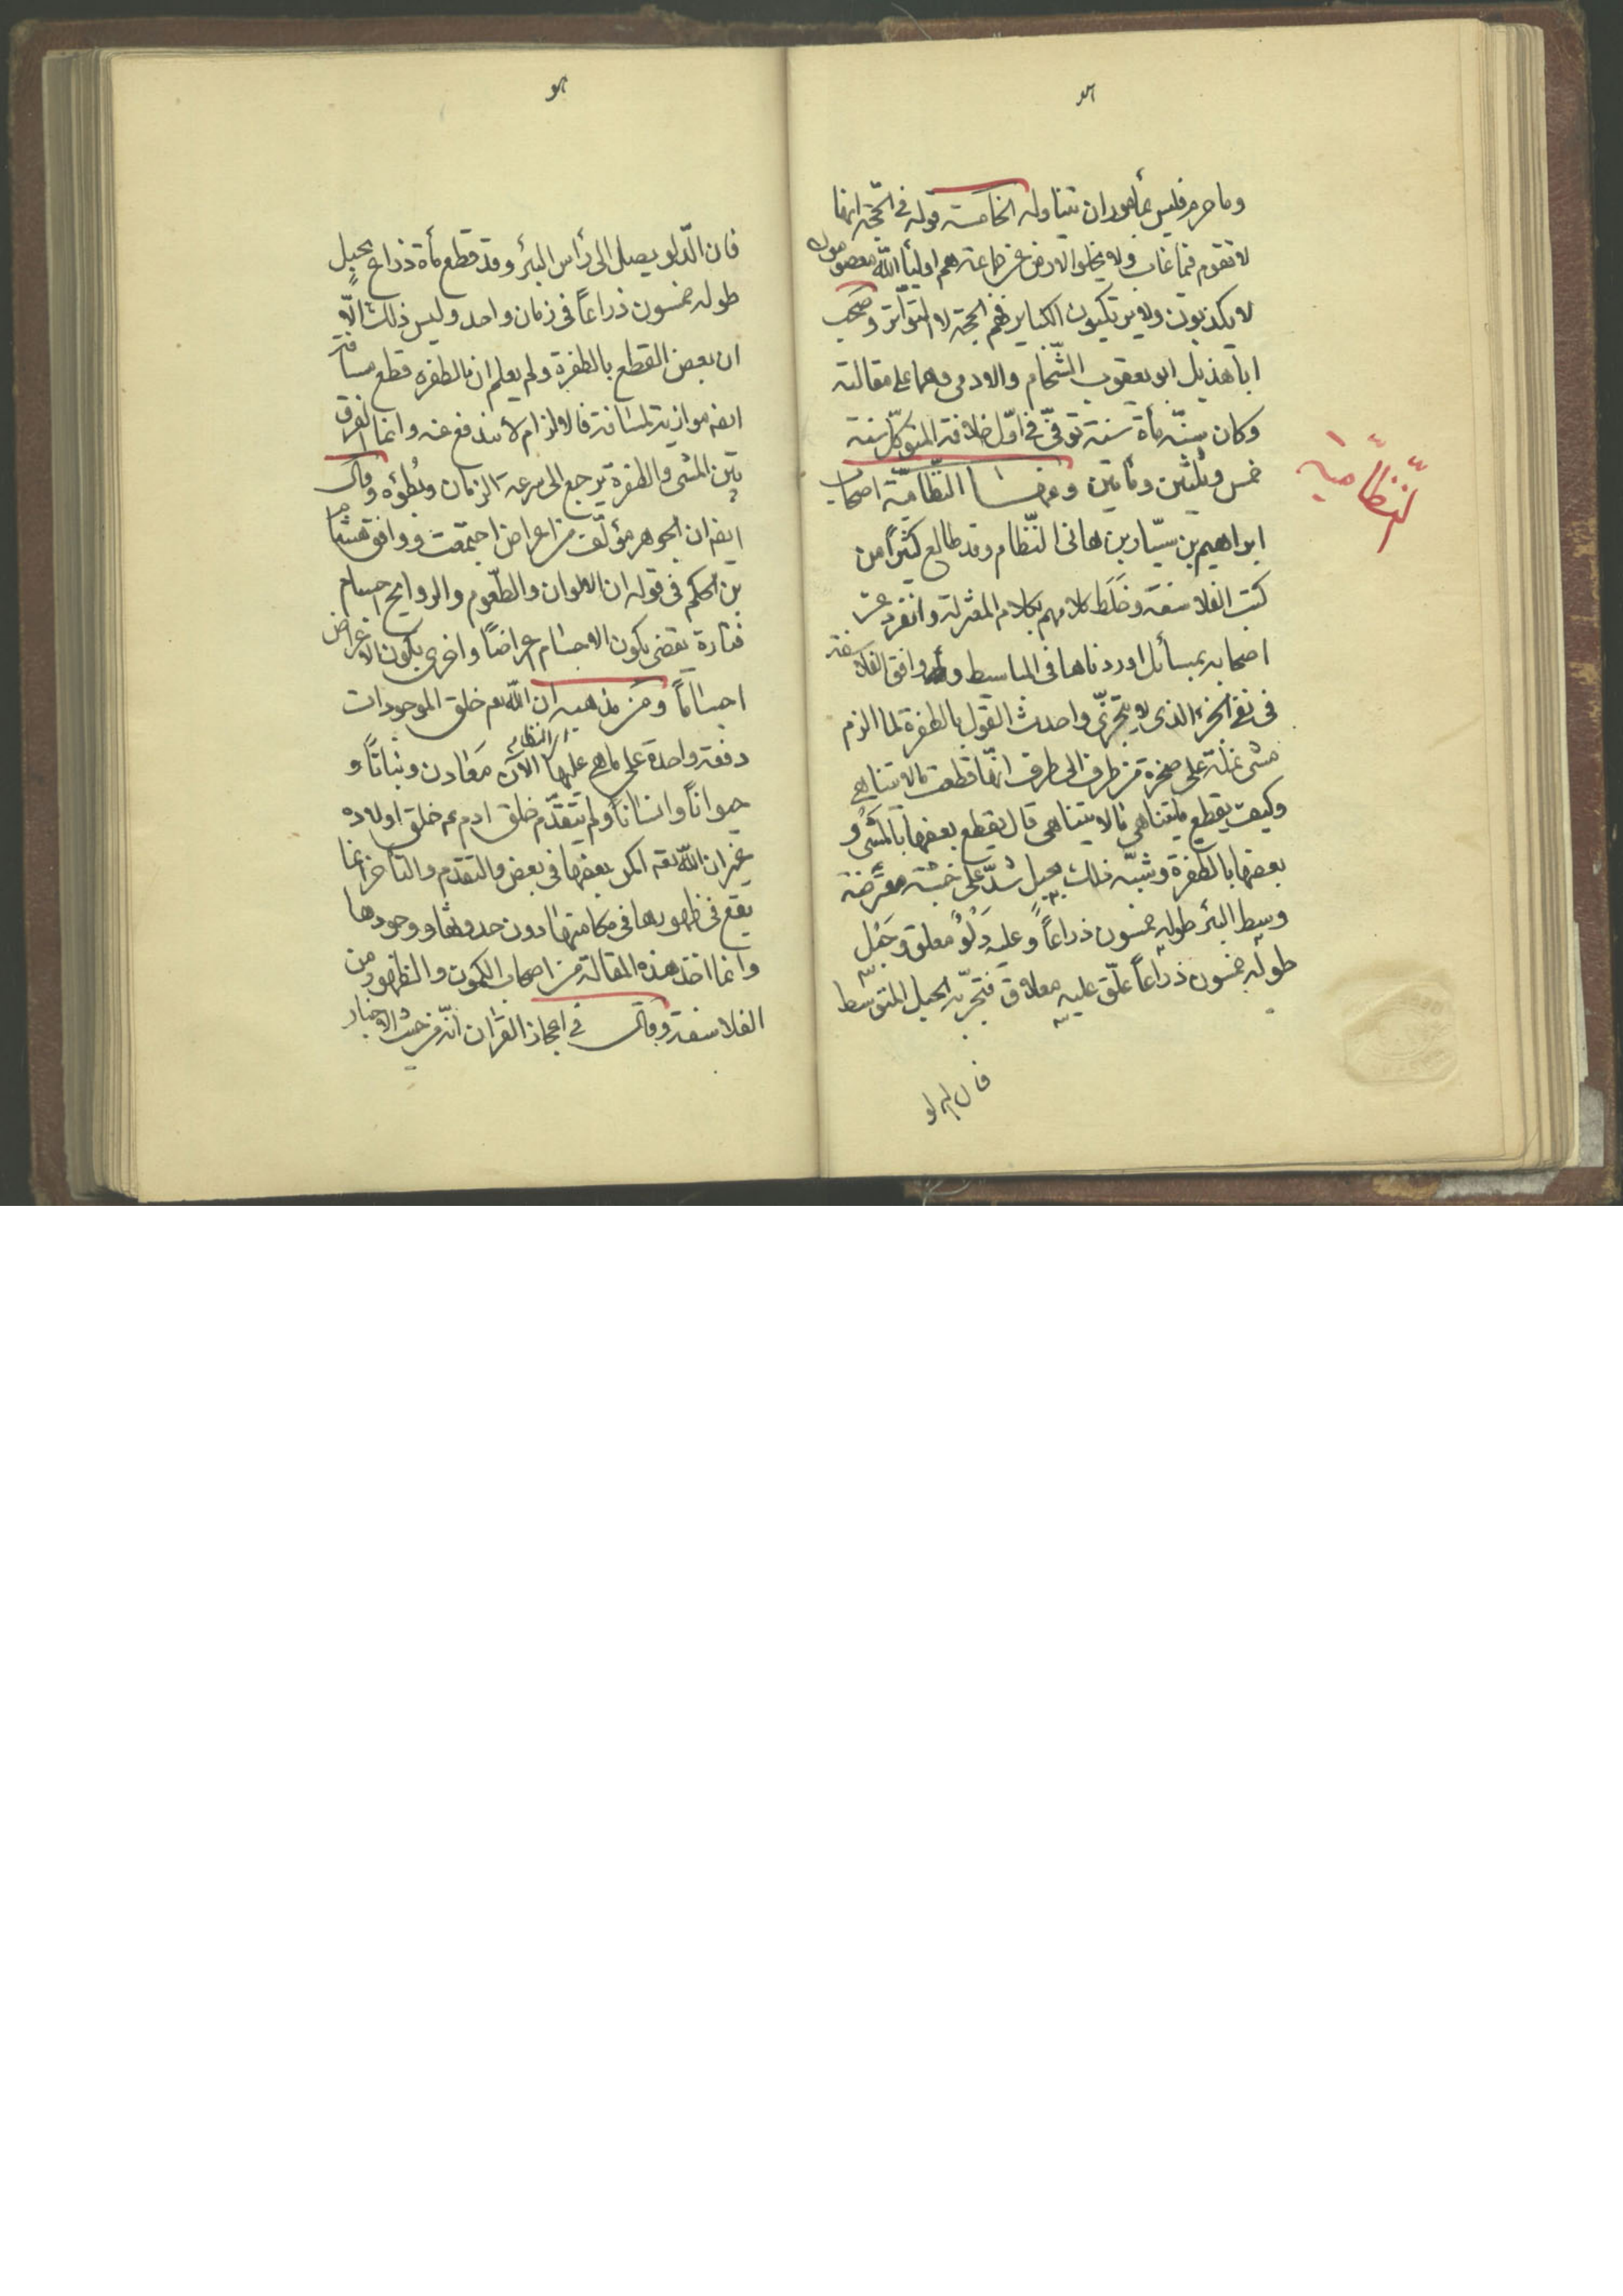 وما حرم فليس بمأمور ان يتناوله الخامسة قوله فى الحجّة انها
لا تقوم فيما غاب ولا يخلو الارض عن جماعة هم اولياء الله معصومون
لا يكذبون ولا يرتكبون الكباير فهم الحجة لا التواتر وصحب
ابا هذيل ابو يعقوب الشّحّام والادمى وهما على مقالته
وكان سنّه مأة سنة توفّى فى اوّل خلافة المتوكّل سنة
خمس وثلثين ومأتين ومنها النّظّاميّة اصحاب
النظّامية
ابراهيم بن سيّار بن هانى النّظام وقد طالع كثيرًا من
كتب الفلاسفة وخَلَط كلامهم بكلام المعتزلة وانفرد عن
اصحابه بمسائل اوردناها فى المباسيط و وافق الفلاسفة
فى نفى الجزء الذى لا يتجزّى واحدث القول بالطفرة لما الزم
مشى نملة على صخرة من طرف الى طرف انّها قطعت ما لا يتناهى
وكيف يقطع ما يتناهى ما لا يتناهى قال يقطع بعضها بالمشى و
بعضها بالطفرة وشبّه ذلك بحبل شدّ على خشبة معترضة
وسط البئر طوله خمسون ذراعاً وعليه دَلْوٌ معلق وحَبْل
طوله خمسون ذراعاً علّق عليه معلاق فتجرّ به الحبل المتوسط
فان الدلو
فان الدّلو يصل الى رأس البئر وقد قطع مأة ذراع بحبل
طوله خمسون ذراعاً فى زمان واحد وليس ذلك الّا
ان بعض القطع بالطفرة ولم يعلم ان الطفرة قطع مسافة
ايضه موازية لمسافة فالالزام لا يندفع عنه وانما الفرق
بين المشى والطفرة يرجع الى سرعة الزمان وبُطؤه وقال
ايضه ان الجوهر مؤلّف من اعراض اجتمعت ووافق هشام
بن الحكم فى قوله ان الالوان والطّعوم والروايح اجسام
فتارة يقضى بكون الاجسام اعراضًا واخرى بكون الاعراض
اجسامًا ومن مذهبه ان الله تعم خلق الموجودات
اى النظام
دفعة واحدة على ما هى عليها الآن معادن ونباتًا و
حيوانًا وانسانًا ولم يتقدّم خلق ادم عم خلق اولاده
غير ان الله تعه اكمن بعضها فى بعض والتقدم والتأخر انما
يقع فى ظهورها فى مكامنها دون حدوثها ووجودها
وانما اخذ هذه المقالة من اصحاب الكمون والظهور من
الفلاسفة وقال فى اعجاز القرآن انّه من حيث الاخبار